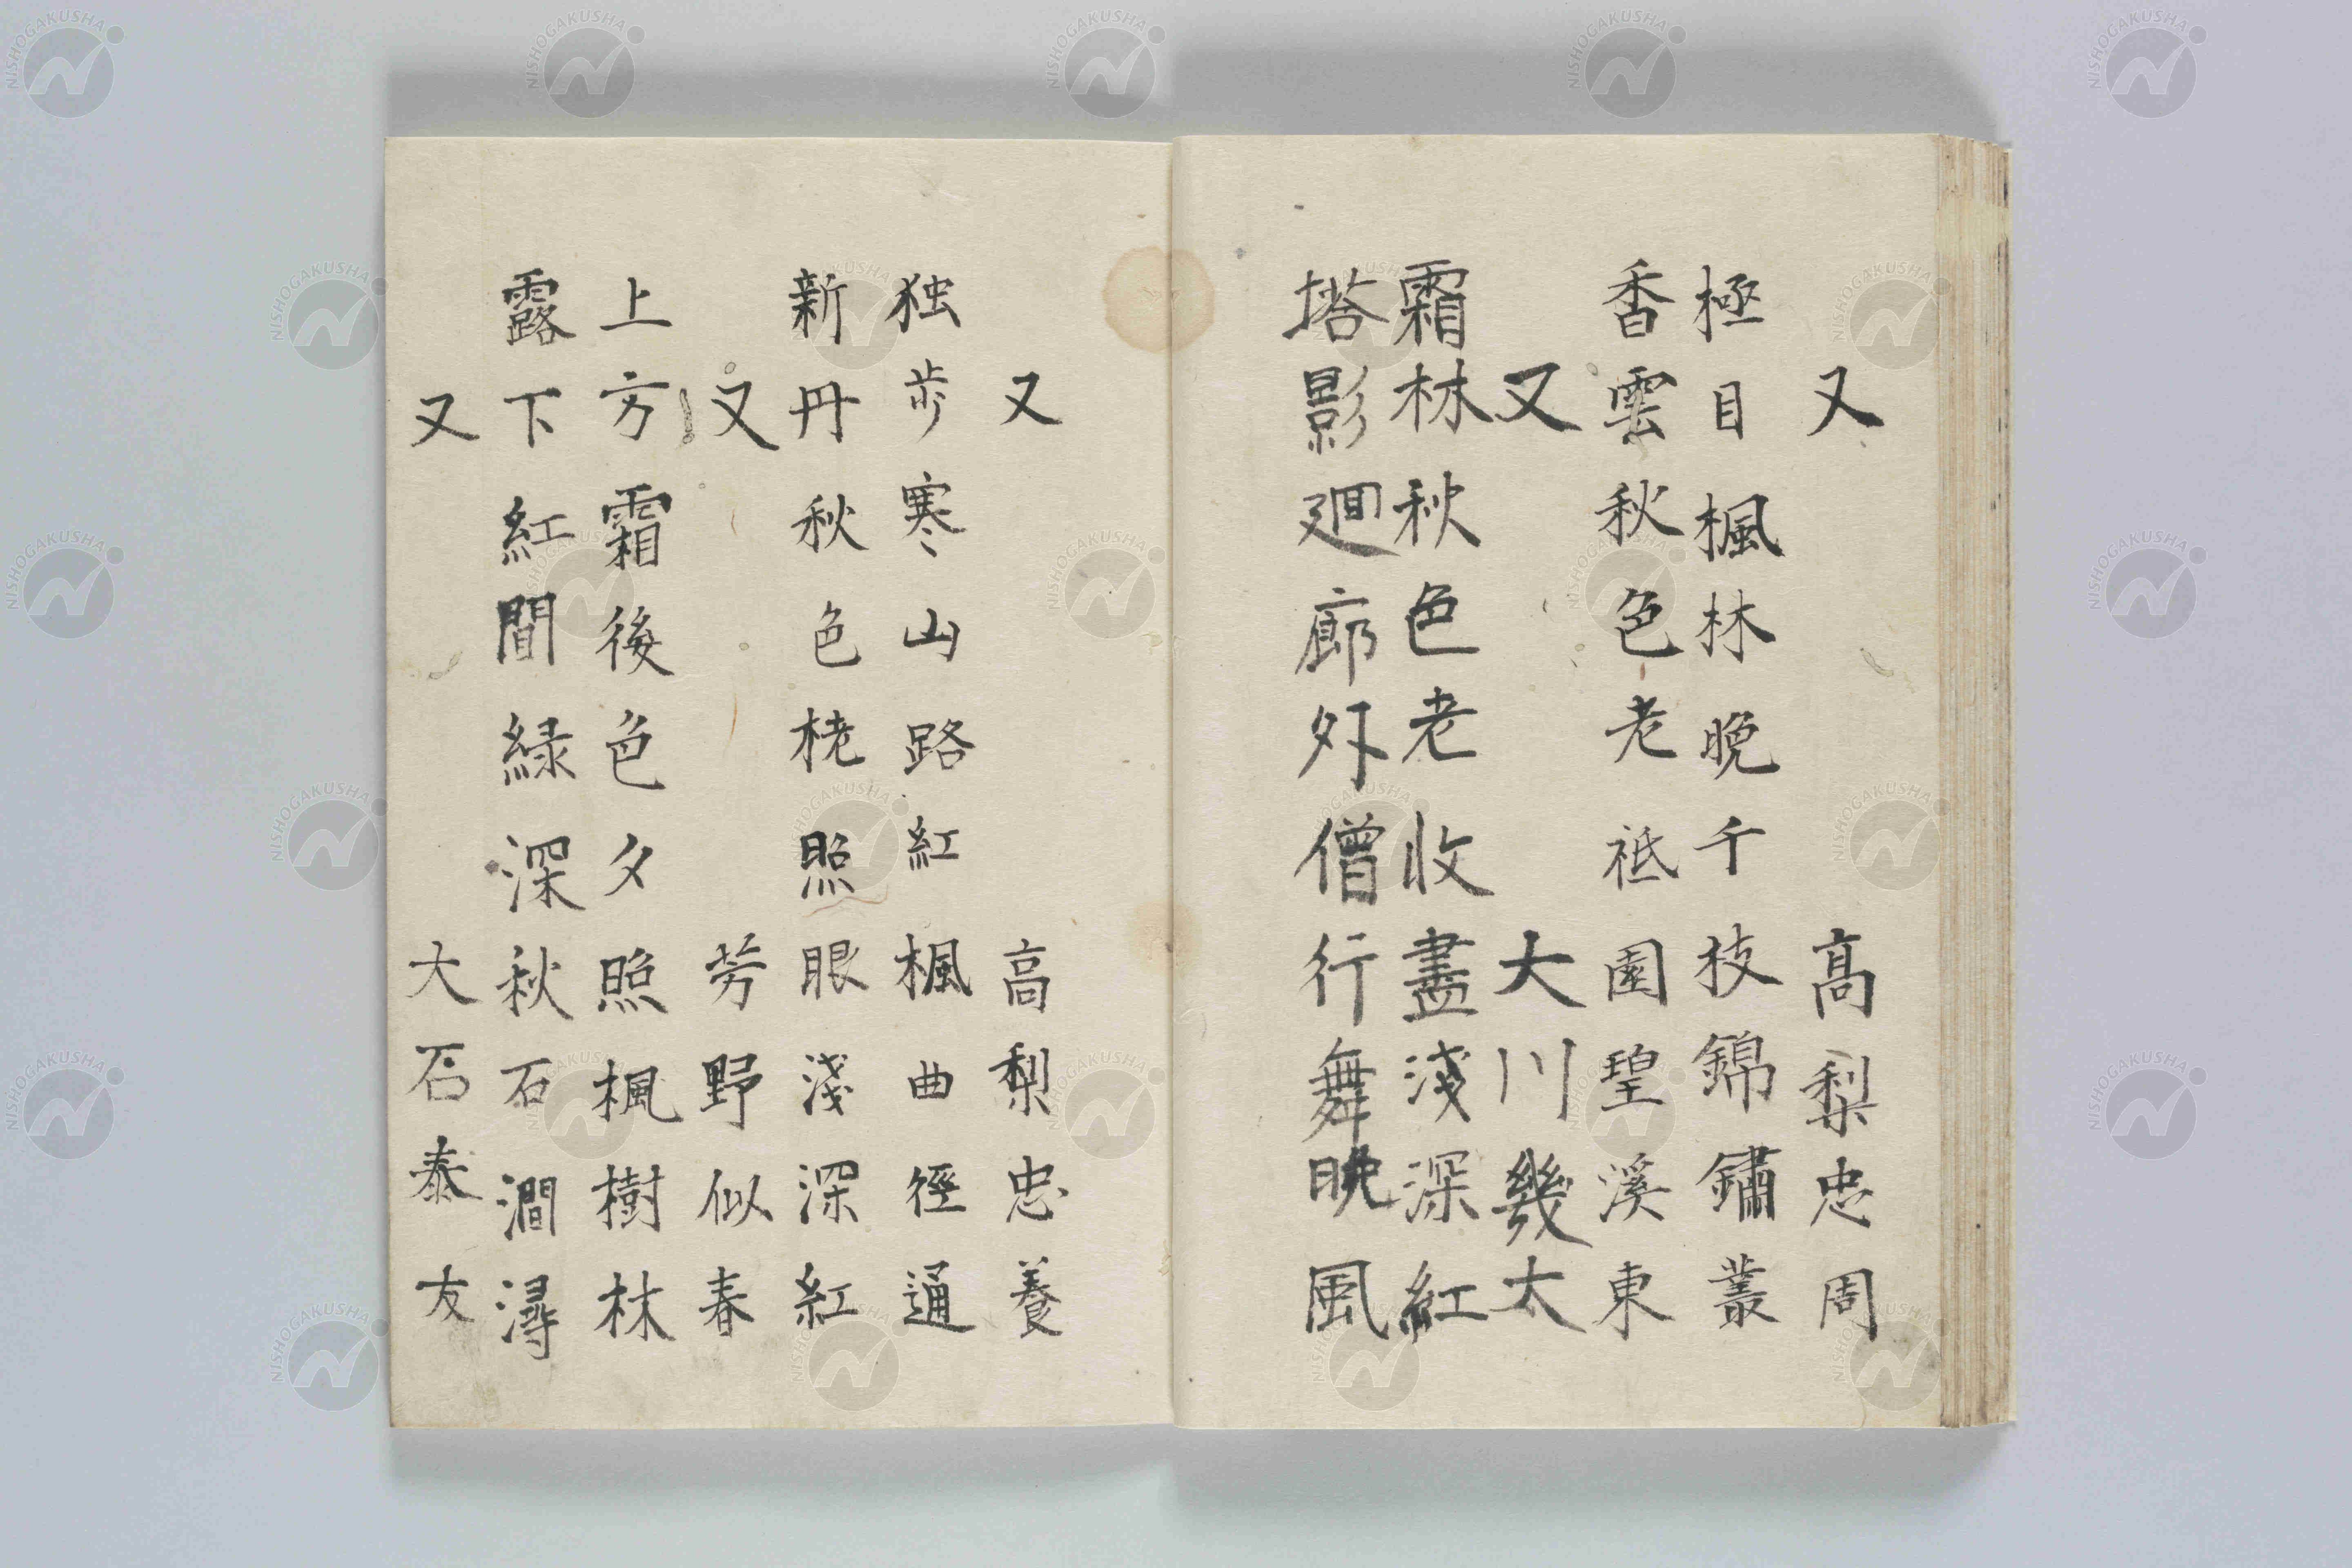 又 高梨忠周
極目楓林晩千枝錦鏽叢
香雲秋色老祇園望溪東
又 大川幾太
霜林秋色老收盡淺深紅
塔影廻廊外僧行舞晩風
又 高梨忠養
独歩寒山路紅楓曲徑通
新丹秋色栳照眼淺深紅
又 芳野似春
上方霜後色夕照楓樹林
露下紅間緑深秋石澗潯
又 大石泰友
NISHOGAKUSHA